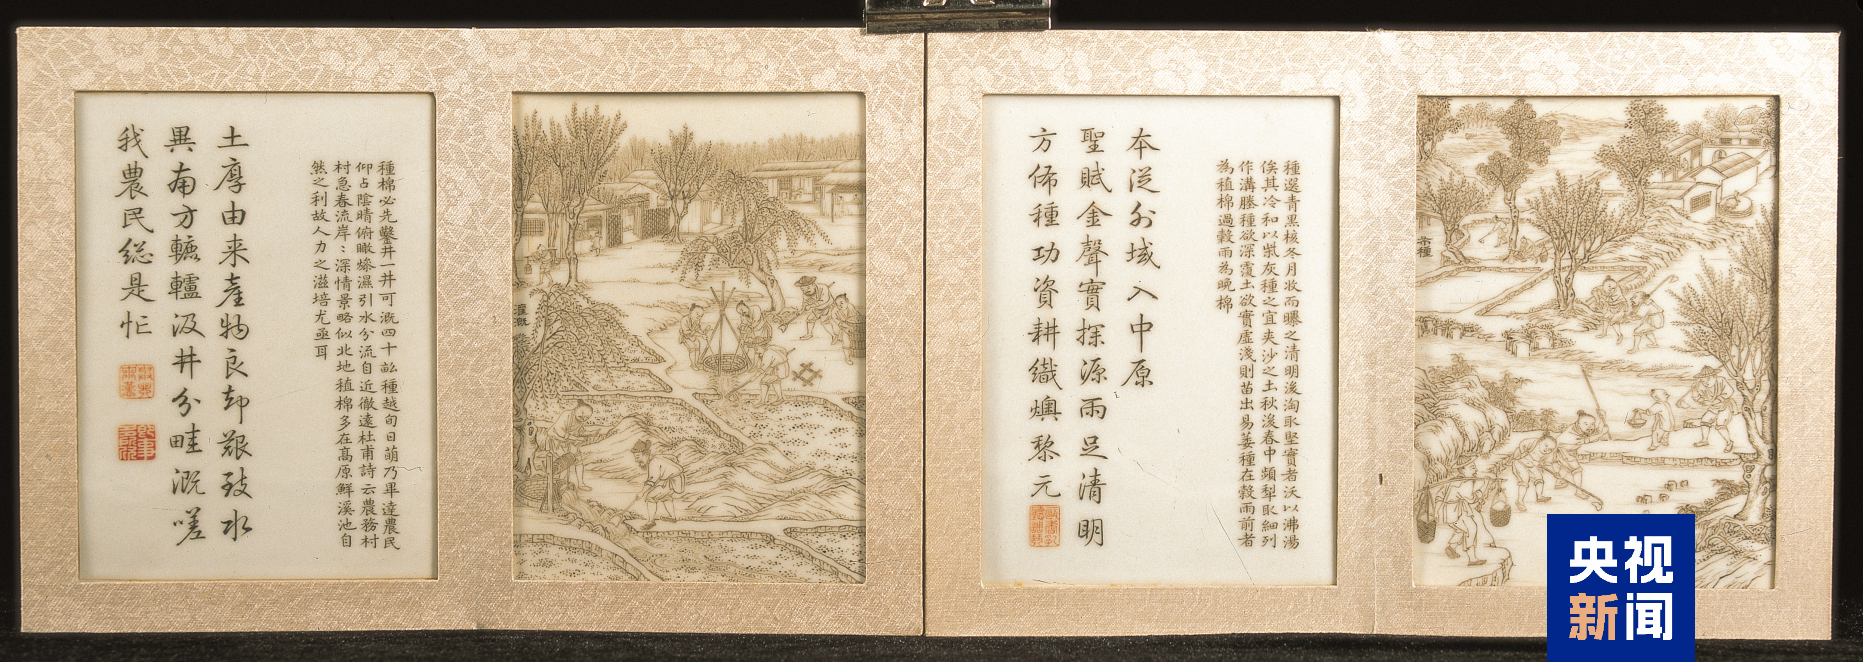 布種
種選青黑核冬月收而曝之清明後淘取堅實者沃以沸湯
俟其冷和以柴灰種之宜夾沙之土秋後春中頻犁取細列
作溝塍種欲深覆土欲實虛淺則苗出易萎種在穀雨前者
為植棉過穀雨為晚棉
本從外域入中原
聖賦金聲實探源雨足清明
方佈種功資耕織燠黎元
灌溉
種棉必先鑿井一井可溉四十畝種越旬日萌乃畢達農民
仰占陰晴俯瞰燥濕引水分流自近徹遠杜甫詩云農務村
村急春流岸〻深情景略似北地植棉多在高原鮮溪池自
然之利故人力之滋培尤亟耳
土厚由来產物良却艱致水
異南方轆轤汲井分畦溉嗟
我農民総是忙
央视
新闻